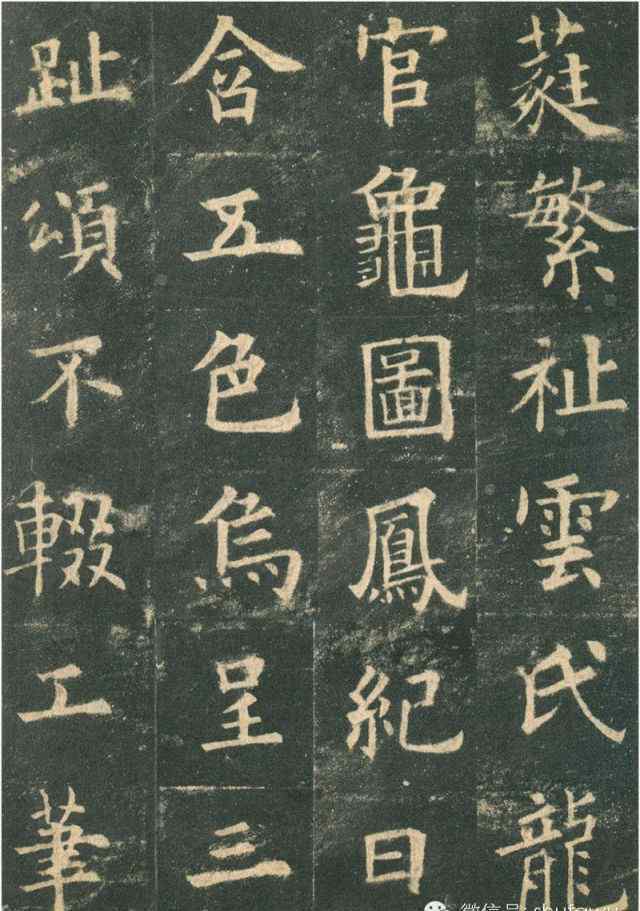 蕤繁祉雲氏龍
官龜圖鳳紀日
含五色烏呈三
趾頌不輟工筆
微信号: